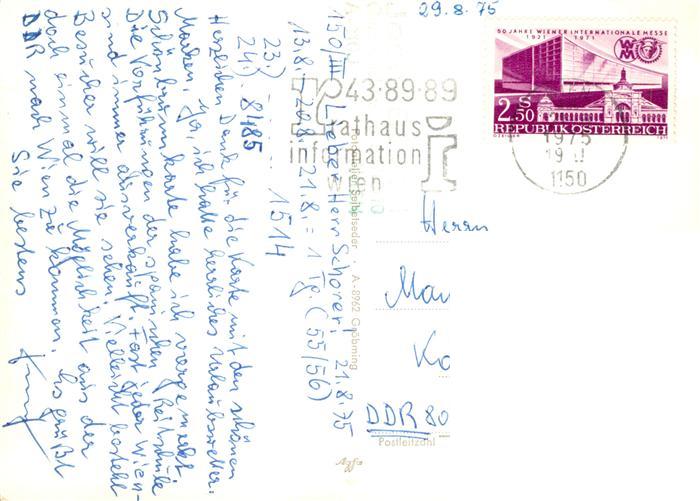 29.8.75
50 JAHRE WIENER INTERNATIONALE MESSE
1921 1971
2.50 S
REPUBLIK ÖSTERREICH
43·89·89
rathaus
information
wien
1975
1150
150/III Lieber Herr Schorer! 21.8.75
13.8. - 20.8. 21.8. = 1 Tg. (55/56)
23)
24. 8485 1514
Herzlichen Dank für die Karte mit den schönen
Marken. Ja, ich hatte herrliches Urlaubswetter.
Schönbrunn karte habe ich vorgemerkt.
Die Vorführungen der spanischen Reitschule
sind immer ausverkauft. Fast jeder Wien-
Besucher will sie sehen. Vielleicht besteht
doch einmal die Möglichkeit aus der
DDR nach Wien zu kommen. Es grüßt
Sie bestens
Seibetseder · A-8962 Gröbming
Herrn
Mau
Ko
DDR 80
Postleitzahl
Agfa